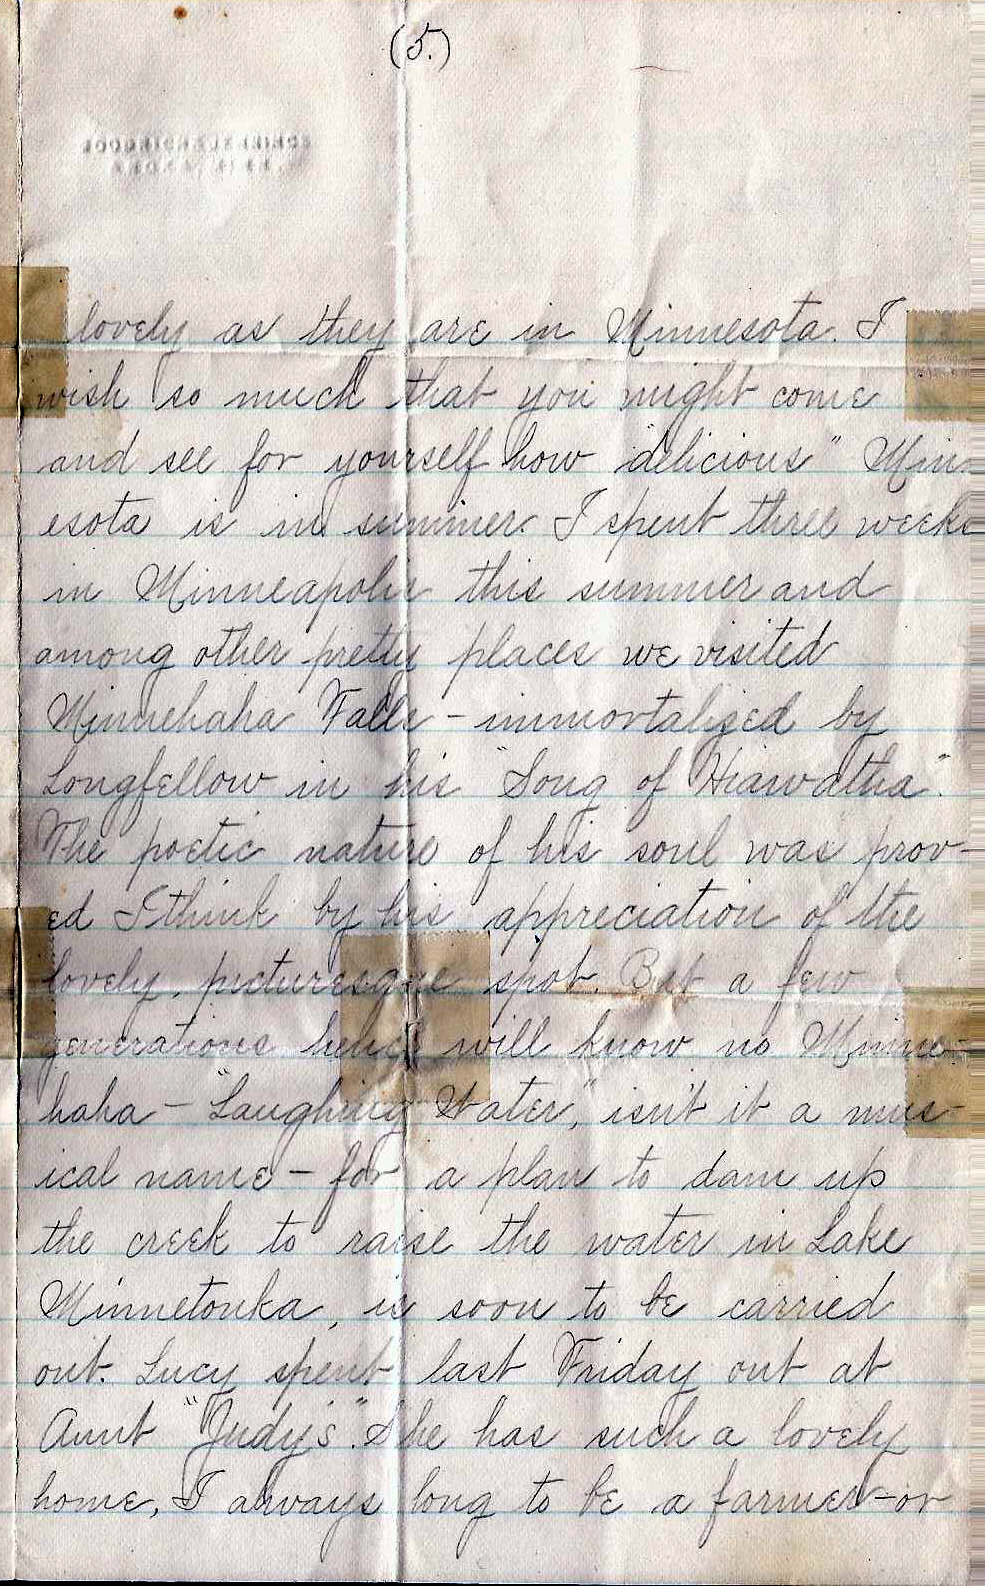 (5.)
lovely as they are in Minnesota. I
wish so much that you might come
and see for yourself how "delicious" Minn-
esota is in summer. I spent three weeks
in Minneapolis this summer and
among other pretty places we visited
Minnehaha Falls - immortalized by
Longfellow in his "Song of Hiawatha".
The poetic nature of his soul was prov-
ed I think by his appreciation of the
lovely, picturesque spot. But a few
generations will know no Minne-
haha - "Laughing Water," isn't it a mus-
ical name - for a plan to dam up
the creek to raise the water in Lake
Minnetonka, is soon to be carried
out. Lucy spent last Friday out at
Aunt "Judy's". She has such a lovely
home, I always long to be a farmer - or